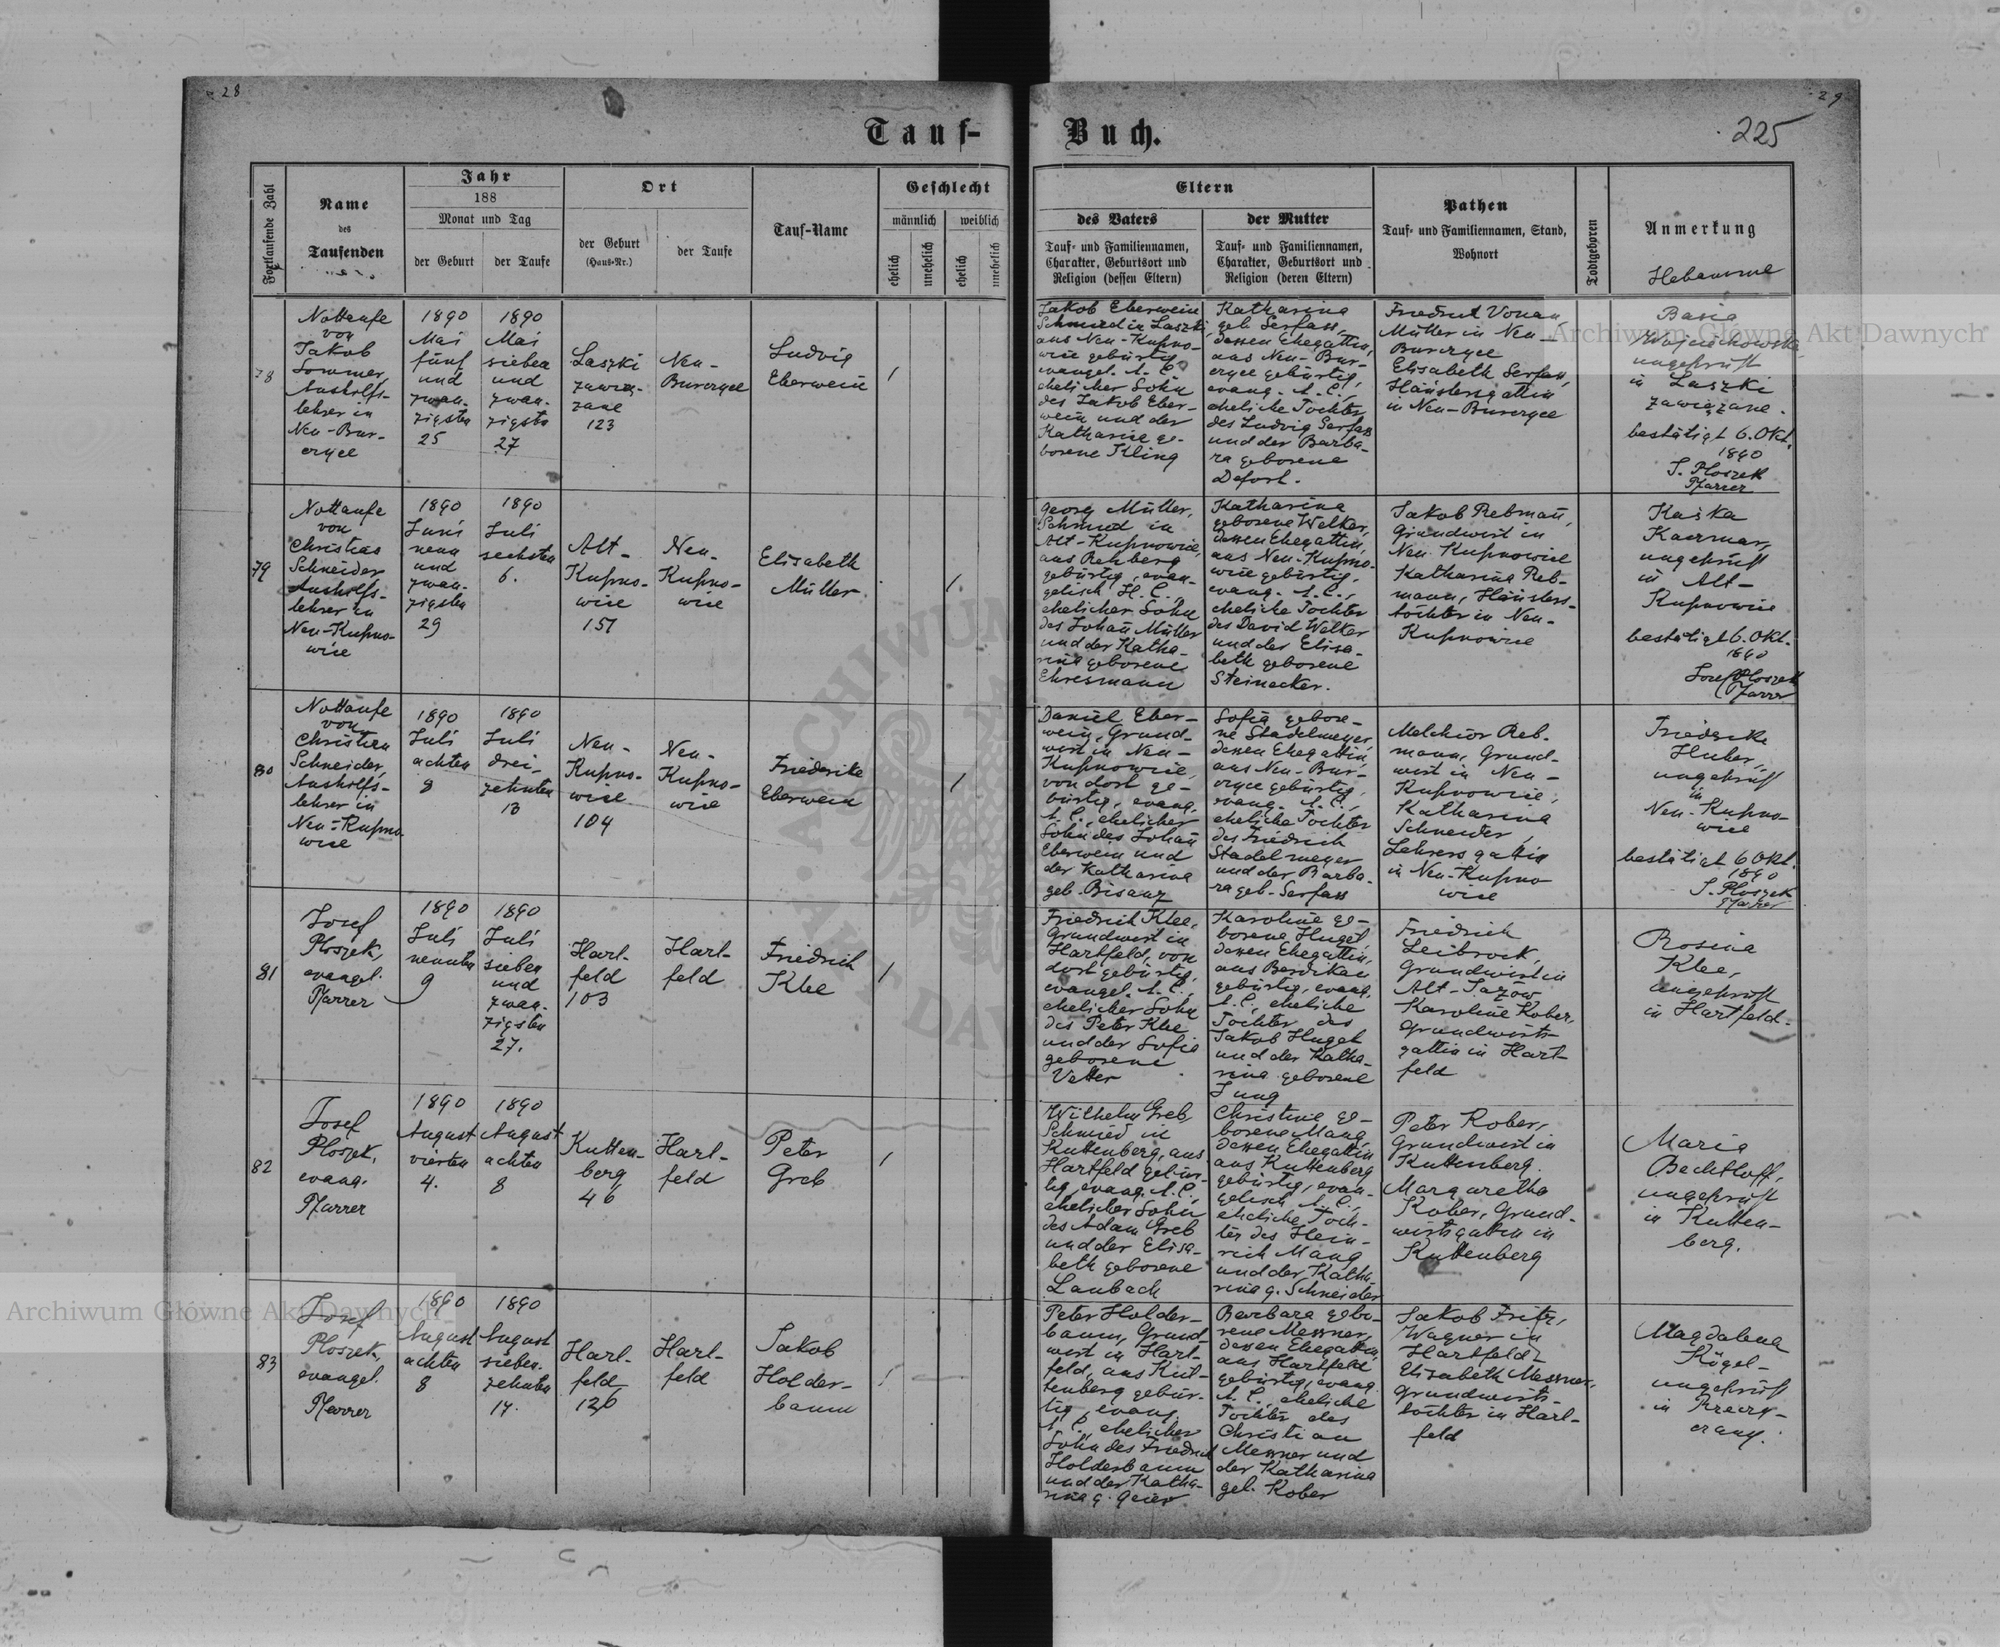 28
29
225
Tauf-Buch.
Fortlaufende Zahl
Name
des
Taufenden
Jahr
188
Monat und Tag
der Geburt
der Taufe
Ort
der Geburt
(Haus-Nr.)
der Taufe
Tauf-Name
Geschlecht
männlich
weiblich
ehelich
unehelich
ehelich
unehelich
Eltern
des Vaters
Tauf- und Familiennamen,
Charakter, Geburtsort und
Religion (dessen Eltern)
der Mutter
Tauf- und Familiennamen,
Charakter, Geburtsort und
Religion (deren Eltern)
Pathen
Tauf- und Familiennamen, Stand,
Wohnort
Todtgeboren
Anmerkung
Hebamme
78
Nottaufe
von
Jakob
Sommer,
Aushilfs-
lehrer in
Neu-Bur-
czyce
1890
Mai
fünf
und
zwan-
zigsten
25
1890
Mai
sieben
und
zwan-
zigsten
27
Laszki
zawią-
zane
123
Neu-
Burczyce
Ludwig
Eberwein
/
Jakob Eberwein
Schmied in Laszki,
aus Neu-Kupno-
wice gebürtig,
evangel. A. C.,
ehelicher Sohn
des Jakob Eber-
wein und der
Katharine ge-
borene Kling
Katharina
geb. Serfass,
dessen Ehegattin,
aus Neu-Bur-
czyce gebürtig,
evang. A. C.,
eheliche Tochter
des Ludwig Serfass
und der Barba-
ra geborene
Defort.
Friedrich Vonau,
Müller in Neu-
Burczyce
Elisabeth Serfass,
Häuslersgattin
in Neu-Burczyce
Basia
Wojciechowska
ungeprüft
in Laszki
zawiązane.
bestätigt 6. Okt.
1890
J. Ploszek
Pfarrer
79
Nottaufe
von
Christian
Schneider
Aushilfs-
lehrer in
Neu-Kupno-
wice
1890
Juni
neun
und
zwan-
zigsten
29
1890
Juli
sechsten
6.
Alt-
Kupno-
wice
151
Neu-
Kupno-
wice
Elisabeth
Müller
/
Georg Müller,
Schmied in
Alt-Kupnowice,
aus Rehberg
gebürtig, evan-
gelisch H. C.,
ehelicher Sohn
des Johan̄ Müller
und der Katha-
rina geborene
Ehresmann
Katharina
geborene Welker,
dessen Ehegattin,
aus Neu-Kupno-
wice gebürtig,
evang. A. C.,
eheliche Tochter
des David Welker
und der Elisa-
beth geborene
Steinecker.
Jakob Rebman̄,
Grundwirt in
Neu-Kupnowice
Katharina Reb-
mann, Häuslers-
tochter in Neu-
Kupnowice
Kaska
ungeprüft
in Alt-
Kupnowice
bestätigt 6. Okt.
1890
Josef Ploszek
Pfarrer
80
Nottaufe
von
Christian
Schneider,
Aushilfs-
lehrer in
Neu-Kupno-
wice
1890
Juli
achten
8
1890
Juli
drei-
zehnten
13
Neu-
Kupno-
wice
104
Neu-
Kupno-
wice
Friederike
Eberwein
/
Daniel Eber-
wein, Grund-
wirt in Neu-
Kupnowice,
von dort ge-
bürtig, evang.
A. C., ehelicher
Sohn des Johan̄
Eberwein und
der Katharina
geb. Bisanz
Sofia gebore-
ne Stadelmeyer,
dessen Ehegattin,
aus Neu-Bur-
czyce gebürtig,
evang. A. C.,
eheliche Tochter
des Friedrich
Stadelmeyer
und der Barba-
ra geb. Serfass
Melchior Reb-
mann, Grund-
wirt in Neu-
Kupnowice,
Katharina
Schneider,
Lehrersgattin
in Neu-Kupno
wice
Friederike
Huber,
ungeprüft
in
Neu-Kupno-
wice
bestätigt 6 Okt.
1890
J. Ploszek
Pfarrer
81
Josef
Ploszek,
evangel.
Pfarrer
1890
Juli
neunten
9
1890
Juli
sieben
und
zwan-
zigsten
27.
Hart-
feld
103
Hart-
feld
Friedrich
Klee
/
Friedrich Klee,
Grundwirt in
Hartfeld, von
dort gebürtig,
evangel. A. C.,
ehelicher Sohn
des Peter Klee
und der Sofia
geborene
Vetter
Karoline ge-
borene Hugel,
dessen Ehegattin,
aus Berdikau
gebürtig, evang.
A. C., eheliche
Tochter des
Jakob Hugel
und der Katha-
rina geborene
Jung
Friedrich
Leibrock,
Grundwirt in
Alt-Jazów
Karoline Kober,
Grundwirts-
gattin in Hart-
feld
Rosina
Klee,
ungeprüft
in Hartfeld.
82
Josef
Ploszek,
evang.
Pfarrer
1890
August
vierten
4.
1890
August
achten
8
Kutten-
berg
46
Hart-
feld
Peter
Greb
/
Wilhelm Greb
Schmied in
Kuttenberg, aus
Hartfeld gebür-
tig, evang. A. C.,
ehelicher Sohn
des Adam Greb
und der Elisa-
beth geborene
Laubach
Christine ge-
borene Mang,
dessen Ehegattin
aus Kuttenberg
gebürtig, evan-
gelisch A. C.,
eheliche Toch-
ter des Hein-
rich Mang
und der Katha-
rina g. Schneider
Peter Kober,
Grundwirt in
Kuttenberg.
Margaretha
Kober, Grund-
wirtsgattin in
Kuttenberg
Maria
Bechtloff,
ungeprüft
in Kutten-
berg.
83
Josef
Ploszek,
evangel.
Pfarrer
1890
August
achten
8
1890
August
sieben-
zehnten
17.
Hart-
feld
126
Hart-
feld
Jakob
Holder-
baum
/
Peter Holder-
baum, Grund-
wirt in Hart-
feld, aus Kut-
tenberg gebür-
tig, evang.
A. C., ehelicher
Sohn des Friedrich
Holderbaum
und der Katha-
rina g. Geier
Barbara gebo-
rene Messner,
dessen Ehegattin,
aus Hartfeld
gebürtig, evang.
A. C., eheliche
Tochter des
Christian
Messner und
der Katharina
geb. Kober
Jakob Fritz,
Wagner in
Hartfeld
Elisabeth Messner,
Grundwirts-
tochter in Hart-
feld
Magdalena
Kögel-
ungeprüft
in
Archiwum Główne Akt Dawnych
Archiwum Główne Akt Dawnych